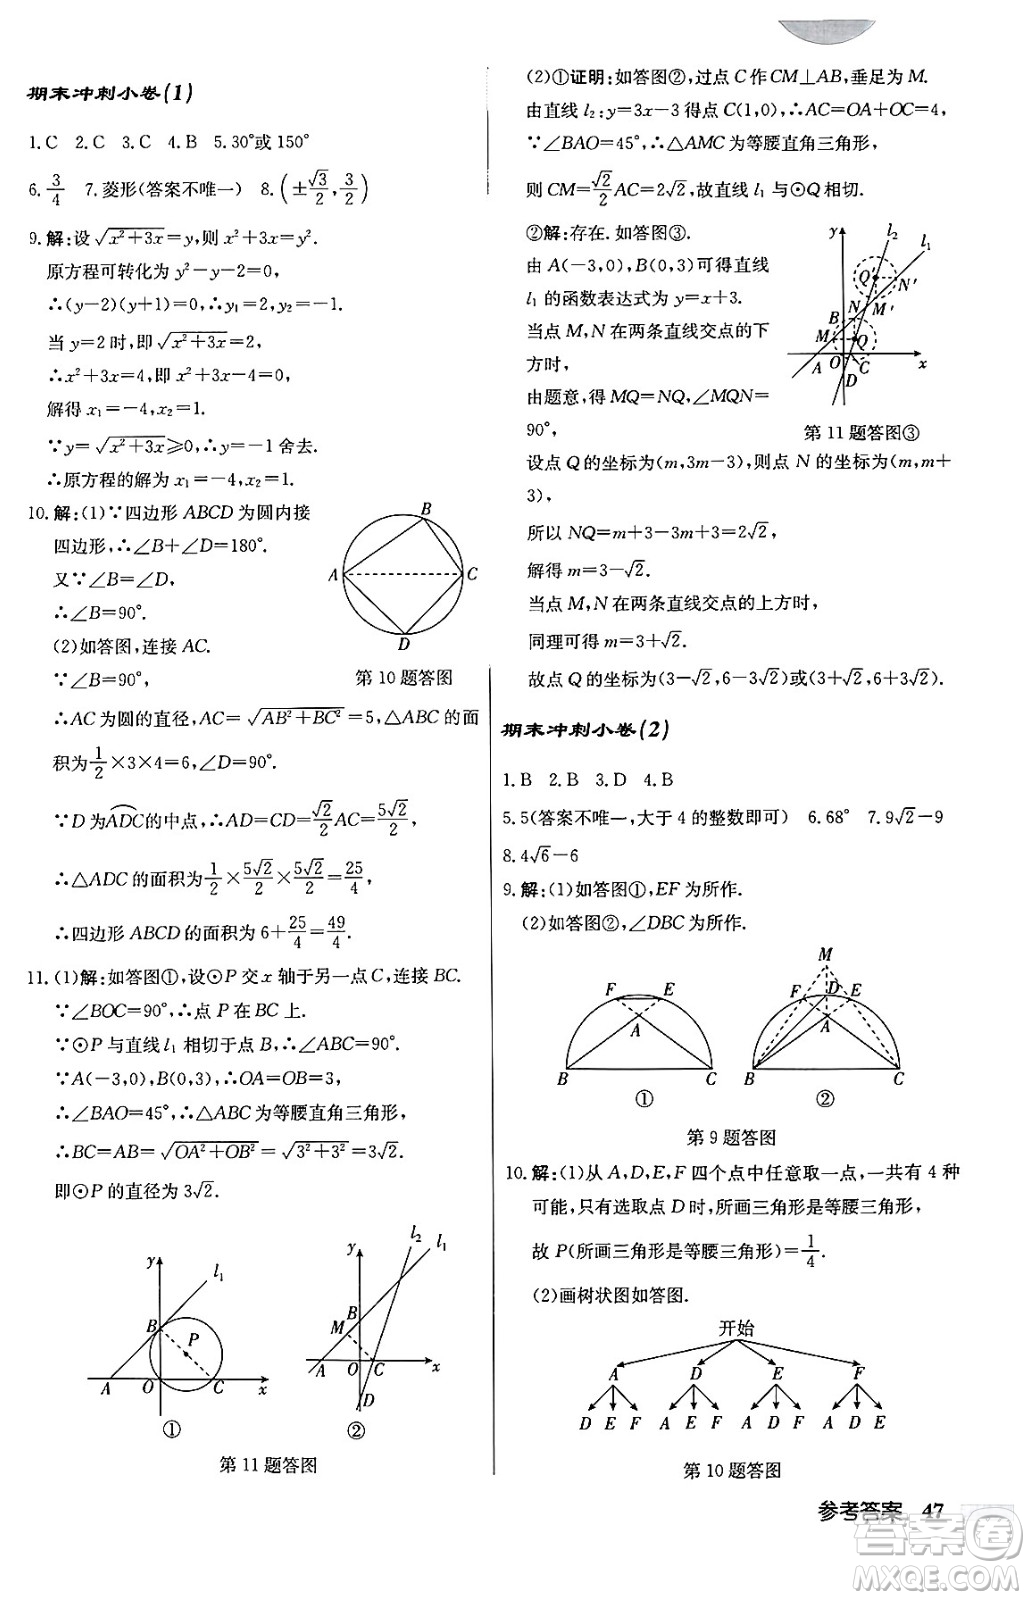 期末冲刺小卷(1)
1.C 2.C 3.C 4.B 5.30°或150°
6.3/4 7.菱形(答案不唯一) 8.(±√3/2,3/2)
9.解:设√(x²+3x)=y,则x²+3x=y².
原方程可转化为y²-y-2=0,
∴(y-2)(y+1)=0,∴y₁=2,y₂=-1.
当y=2时,即√(x²+3x)=2,
∴x²+3x=4,即x²+3x-4=0,
解得x₁=-4,x₂=1.
∵y=√(x²+3x)≥0,∴y=-1舍去.
∴原方程的解为x₁=-4,x₂=1.
10.解:(1)∵四边形ABCD为圆内接
四边形,∴∠B+∠D=180°.
又∵∠B=∠D,
∴∠B=90°.
(2)如答图,连接AC.
∵∠B=90°,
B
A
C
D
第10题答图
∴AC为圆的直径,AC=√(AB²+BC²)=5,△ABC的面
积为1/2×3×4=6,∠D=90°.
∵D为ADC的中点,∴AD=CD=√2/2AC=5√2/2,
∴△ADC的面积为1/2×5√2/2×5√2/2=25/4,
∴四边形ABCD的面积为6+25/4=49/4.
11.(1)解:如答图①,设⊙P交x轴于另一点C,连接BC.
∵∠BOC=90°,∴点P在BC上.
∵⊙P与直线l₁相切于点B,∴∠ABC=90°.
∵A(-3,0),B(0,3),∴OA=OB=3,
∴∠BAO=45°,∴△ABC为等腰直角三角形,
∴BC=AB=√(OA²+OB²)=√(3²+3²)=3√2.
即⊙P的直径为3√2.
y
l₁
B
P
A
O
C
x
①
y
l₂
l₁
B
M
A
O
C
x
D
②
第11题答图
(2)①证明:如答图②,过点C作CM⊥AB,垂足为M.
由直线l₂:y=3x-3得点C(1,0),∴AC=OA+OC=4,
∵∠BAO=45°,∴△AMC为等腰直角三角形,
则CM=√2/2AC=2√2,故直线l₁与⊙Q相切.
②解:存在.如答图③.
由A(-3,0),B(0,3)可得直线
l₁的函数表达式为y=x+3.
当点M,N在两条直线交点的下
方时,
由题意,得MQ=NQ,∠MQN=
90°,
y
l₂
l₁
Q′
N′
N
M′
B
M
Q
A
O
C
x
D
第11题答图③
设点Q的坐标为(m,3m-3),则点N的坐标为(m,m+
3),
所以NQ=m+3-3m+3=2√2,
解得m=3-√2.
当点M,N在两条直线交点的上方时,
同理可得m=3+√2.
故点Q的坐标为(3-√2,6-3√2)或(3+√2,6+3√2).
期末冲刺小卷(2)
1.B 2.B 3.D 4.B
5.5(答案不唯一,大于4的整数即可) 6.68° 7.9√2-9
8.4√6-6
9.解:(1)如答图①,EF为所作.
(2)如答图②,∠DBC为所作.
F
E
A
B
C
①
M
F
D
E
A
B
C
②
第9题答图
10.解:(1)从A,D,E,F四个点中任意取一点,一共有4种
可能,只有选取点D时,所画三角形是等腰三角形,
故P(所画三角形是等腰三角形)=1/4.
(2)画树状图如答图.
开始
A D E F
D E F A E F A D F A D E
第10题答图
参考答案 47
答案圈
MXQE.COM